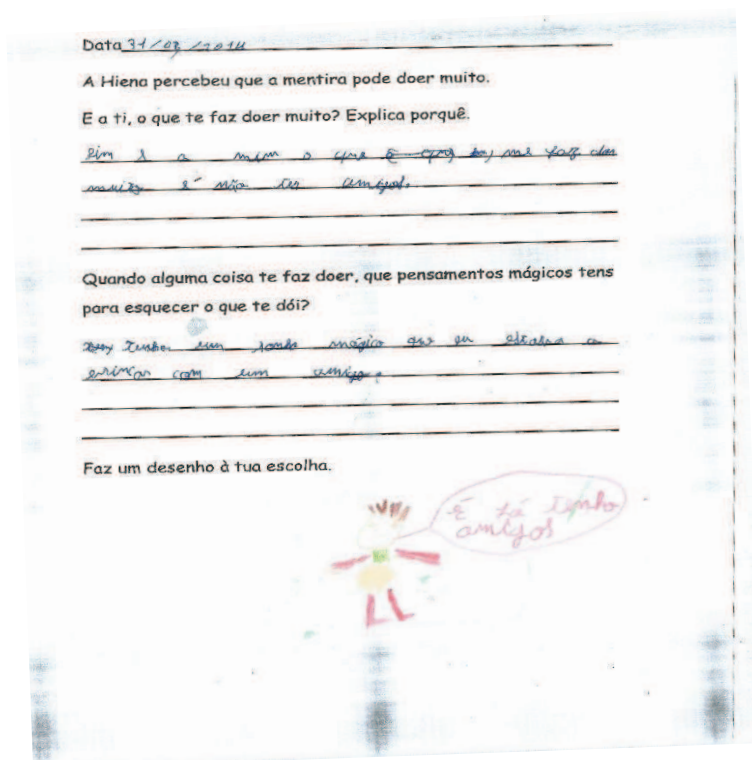 Data 31/03/2014
A Hiena percebeu que a mentira pode doer muito.
E a ti, o que te faz doer muito? Explica porquê.
Sim e a mim o que me faz doer
muito é não ter amigos.
Quando alguma coisa te faz doer, que pensamentos mágicos tens
para esquecer o que te dói?
tenho um sonho mágico que eu estava a
brincar com um amigo.
Faz um desenho à tua escolha.
E já tenho
amigos